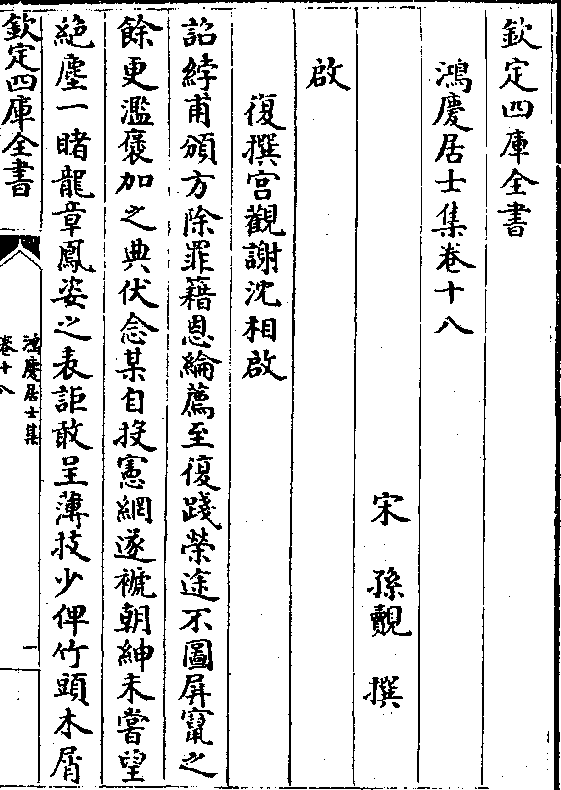 欽定四庫全書
鴻慶居士集卷十八
宋　孫覿　撰
啟
復撰宫觀謝沈相啟
詔綍甫頒方除罪籍恩綸薦至復踐榮途不圖屏竄之
餘更濫褒加之典伏念某自投憲網遂褫朝紳未嘗望
絶塵一睹龍章鳳姿之表詎敢呈薄技少俾竹頭木屑
欽定四庫全書
鴻慶居士集
卷十八
一